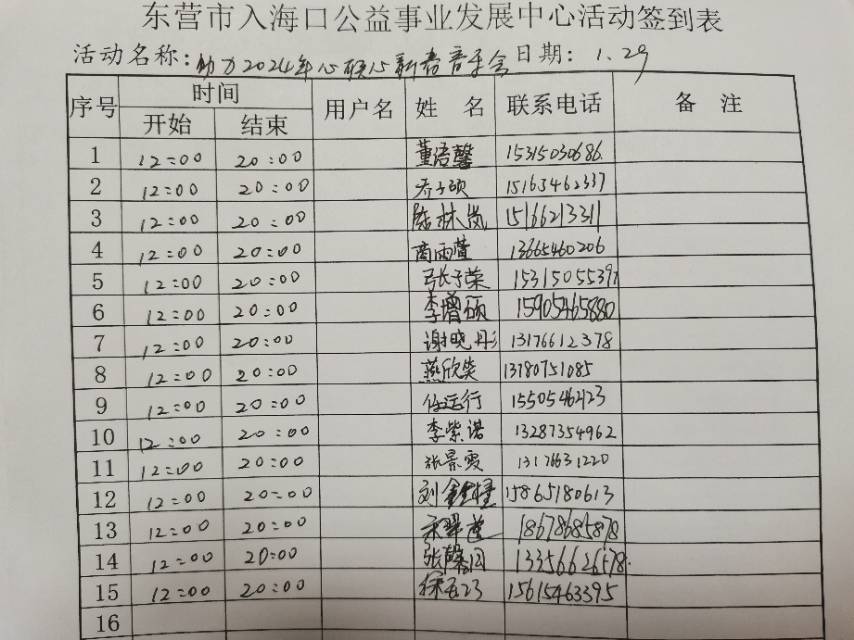 东营市入海口公益事业发展中心活动签到表
活动名称：助力2024年心联心新春音乐会 日期：1.29
序号 时间 用户名 姓 名 联系电话 备 注
开始 结束
1 12:00 20:00 董语馨 15315030686
2 12:00 20:00 乔子硕 15165462337
3 12:00 20:00 陈林岚 15166213311
4 12:00 20:00 商雨萱 13665460206
5 12:00 20:00 张子荣 15315055397
6 12:00 20:00 李增硕 15905465880
7 12:00 20:00 谢晓彤 13176612378
8 12:00 20:00 燕欣奕 13780751085
9 12:00 20:00 任运行 15505462123
10 12:00 20:00 李紫诺 13287354962
11 12:00 20:00 张景霞 13176631220
12 12:00 20:00 刘鑫 15865180613
13 12:00 20:00 18678685878
14 12:00 20:00 张馨 13356626578
15 12:00 20:00 15615463395
16